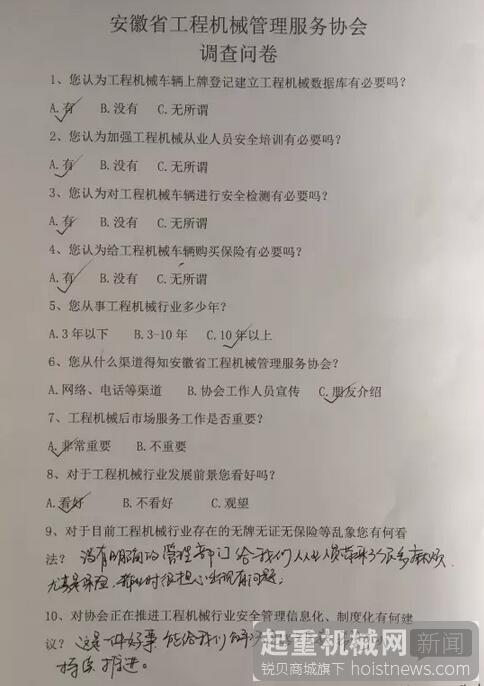 安徽省工程机械管理服务协会
调查问卷
1、您认为工程机械车辆上牌登记建立工程机械数据库有必要吗?
A.有 B.没有 C.无所谓
2、您认为加强工程机械从业人员安全培训有必要吗?
A.有 B.没有 C.无所谓
3、您认为对工程机械车辆进行安全检测有必要吗?
A.有 B.没有 C.无所谓
4、您认为给工程机械车辆购买保险有必要吗?
A.有 B.没有 C.无所谓
5、您从事工程机械行业多少年?
A.3年以下 B.3-10年 C.10年以上
6、您从什么渠道得知安徽省工程机械管理服务协会?
A.网络、电话等渠道 B.协会工作人员宣传 C.朋友介绍
7、工程机械后市场服务工作是否重要?
A.非常重要 B.不重要
8、对于工程机械行业发展前景您看好吗?
A.看好 B.不看好 C.观望
9、对于目前工程机械行业存在的无牌无证无保险等乱象您有何看
法? 没有明确的管理部门 给我们从业人员带来了很多麻烦
尤其是保险, 时很担心出现有问题。
10、对协会正在推进工程机械行业安全管理信息化、制度化有何建
议? 这是一件好事 能给我们
持续推进。
起重机械网 新闻
锐贝商城旗下 hoistnews.com